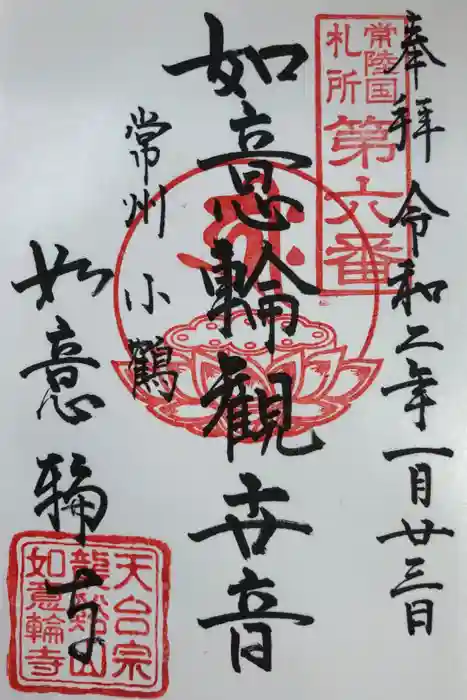 奉拝 令和二年一月廿三日
常陸国
札所
第六番
如意輪観世音
常州 小鶴
如意輪寺
天台宗
龍智山
如意輪寺